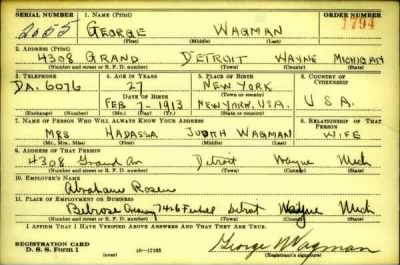 SERIAL NUMBER 1. NAME (Print) ORDER NUMBER
2055 GEORGE WAGMAN 1794
(First) (Middle) (Last)
2. ADDRESS (Print)
4308 GRAND DETROIT WAYNE MICHIGAN
(Number and street or R. F. D. number) (Town) (County) (State)
3. TELEPHONE 4. AGE IN YEARS 5. PLACE OF BIRTH 6. COUNTRY OF CITIZENSHIP
DA. 6076 27 NEW YORK
DATE OF BIRTH (Town or county)
FEB 7- 1913 NEW YORK, U.S.A. U.S.A.
(Exchange) (Number) (Mo.) (Day) (Yr.) (State or country)
7. NAME OF PERSON WHO WILL ALWAYS KNOW YOUR ADDRESS 8. RELATIONSHIP OF THAT PERSON
MRS HADASSA JUDITH WAGMAN WIFE
(Mr., Mrs., Miss) (First) (Middle) (Last)
9. ADDRESS OF THAT PERSON
4308 Grand Av Detroit Wayne Mich
(Number and street or R. F. D. number) (Town) (County) (State)
10. EMPLOYER'S NAME
Abraham Rosen
11. PLACE OF EMPLOYMENT OR BUSINESS
7426 Detroit Wayne Mich
(Number and street or R. F. D. number) (Town) (County) (State)
I AFFIRM THAT I HAVE VERIFIED ABOVE ANSWERS AND THAT THEY ARE TRUE.
REGISTRATION CARD
D. S. S. Form 1 (over) 16—17105 George Wagman
(Registrant's signature)